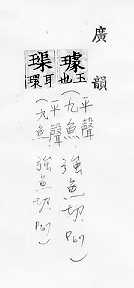 廣韻
璩
玉
也
(平聲
九魚
強魚切
P69)
璖
耳
環
(平聲
九魚
強魚切
P69)